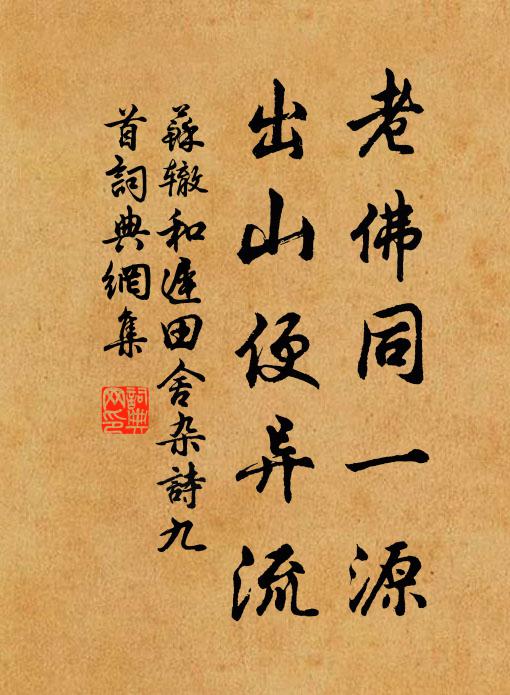 老佛同一源
出山便异流
蘇辙和遲田舍杂詩九
首詞典網集
詞典
网印